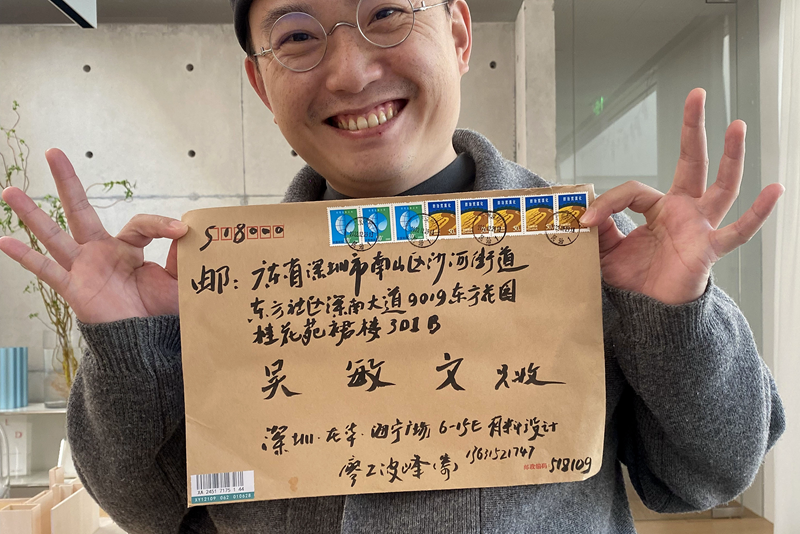 518000
邮:广东省深圳市南山区沙河街道
东方社区深南大道9019东方花园
桂花苑裙楼301B
吴敏文 先收
深圳·龙华·
6-15E 有料设计
廖波峰(寄) 13631521747
邮政编码: 518109
XA 2451 7175 1 44